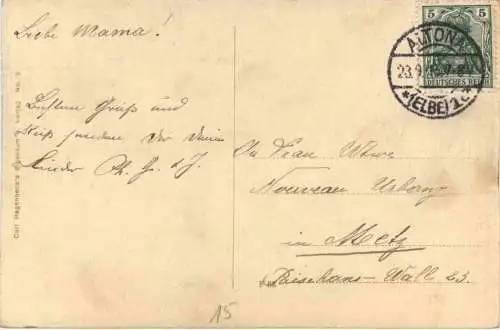 Liebe Mama!
Besten Gruß und
Kuß senden Dir Deine
Kinder Ph. G. J.
An Frau Witwe
Nouveau
in Metz
Wall 23.
15
5 5
DEUTSCHES REICH
ALTONA
23.9.
*(ELBE)1*
Carl Hagenbeck's Eigentum u. Verlag No. 5